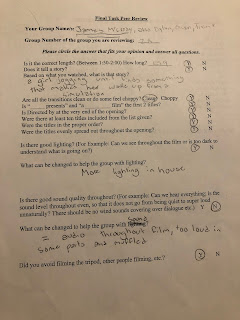 Final Task Peer Review
Your Group Names:
Group Number of the group you are reviewing:
Please circle the answer that fits your opinion and answer all questions.
Is it the correct length? (Between 1:50-2:00) How long? Y N
Does it tell a story? Y N
Based on what you watched, what is that story?
a girl
that makes her wake up from a
simulation
Are all the transitions clean or do some feel choppy? Clean Choppy
Is " presents" and "a film" the first 2 titles? Y N
Is Directed by at the very end of the opening? Y N
Were there at least ten titles included from the list given? Y N
Were the titles in the proper order? Y N
Were the titles evenly spread out throughout the opening? Y N
Is there good lighting? (For Example: Can we see throughout the film or is it too dark to
understand what is going on?) Y N
What can be changed to help the group with lighting?
More lighting in house
Is there good sound quality throughout? (For Example: Can we hear everything; is the
sound level throughout even, so that it does not go from being quiet to super loud
unnaturally? There should be no wind sounds covering over dialogue etc.) Y N
What can be changed to help the group with lighting? sound
= audio throughout film, too loud in
some parts and muffled
Did you avoid filming the tripod, other people filming, etc.? Y N